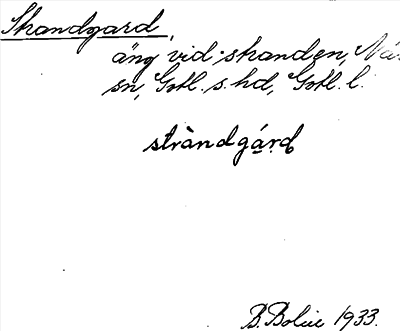 Strandgard,
äng vid stranden, När
sn, Gotl. s. hd, Gotl. l.
stràndgárd
B. Bolin 1933.